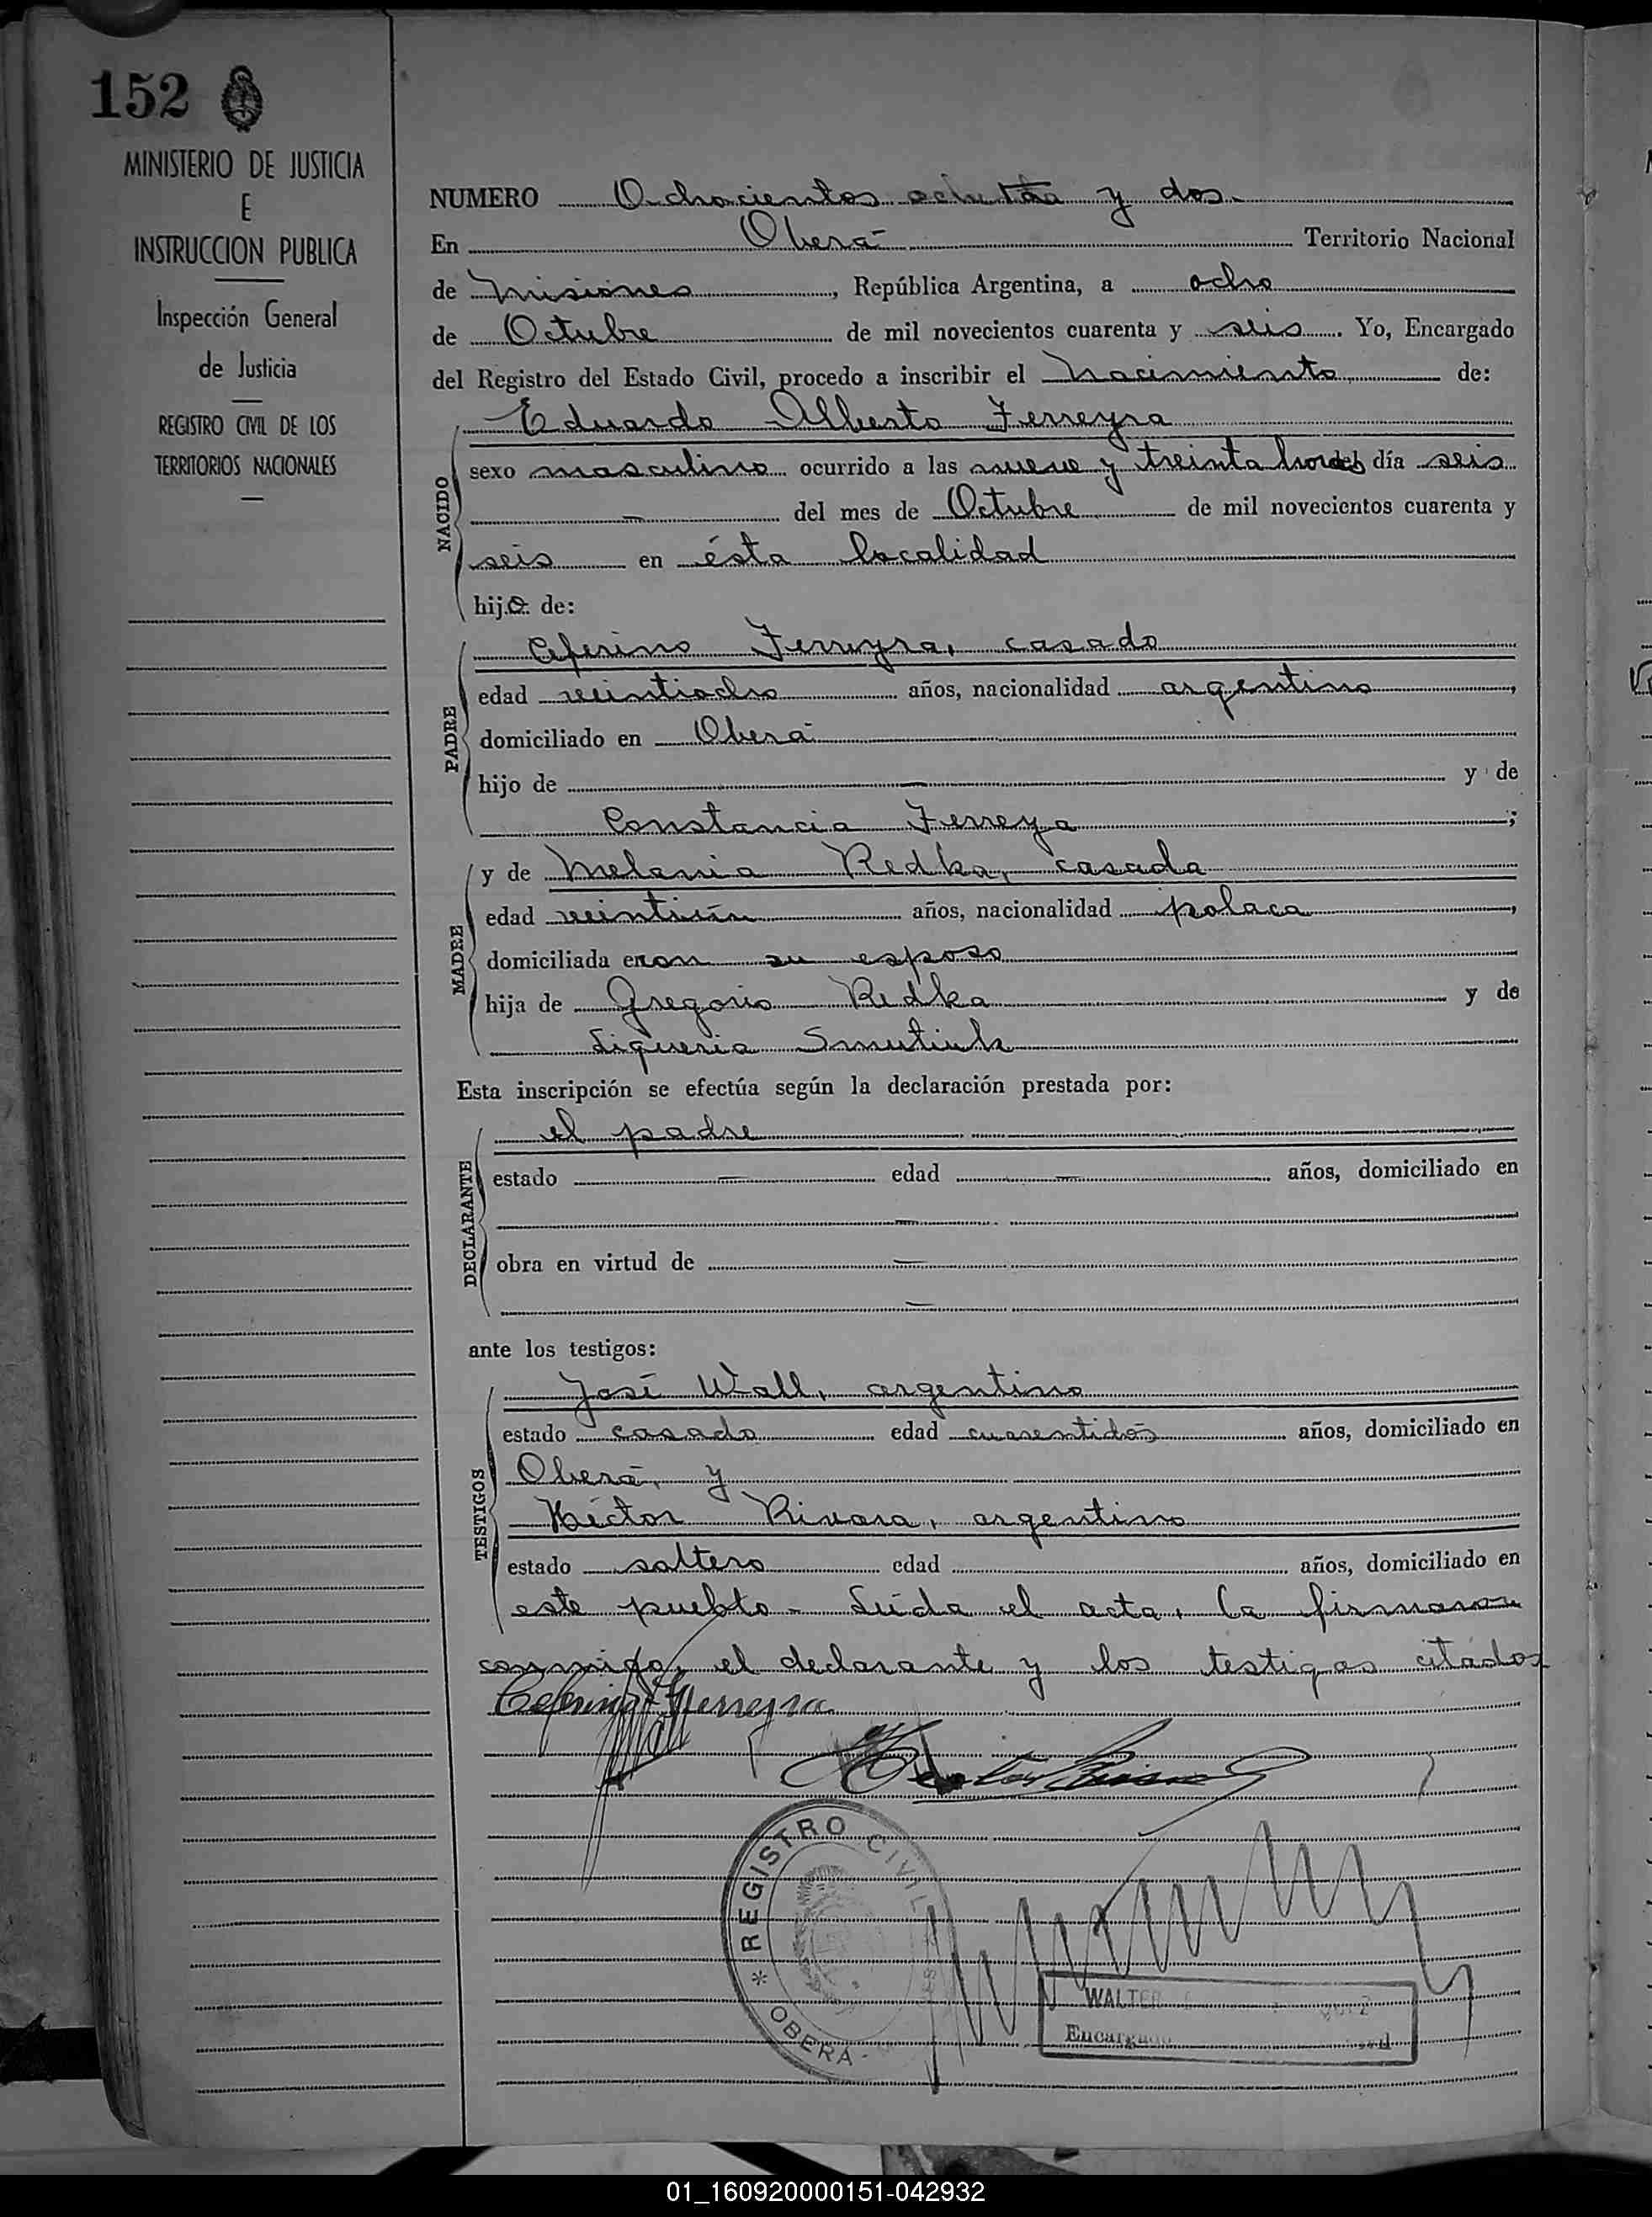 152
MINISTERIO DE JUSTICIA
E
INSTRUCCION PUBLICA
Inspección General
de Justicia
REGISTRO CIVIL DE LOS
TERRITORIOS NACIONALES
NUMERO Ochocientos ochenta y dos.-
En Oberá Territorio Nacional
de Misiones, República Argentina, a ocho
de Octubre de mil novecientos cuarenta y seis. Yo, Encargado
del Registro del Estado Civil, procedo a inscribir el nacimiento de:
Eduardo Alberto Ferreyra
NACIDO
sexo masculino ocurrido a las nueve y treinta horas del día seis
— del mes de Octubre de mil novecientos cuarenta y
seis en ésta localidad
hijo de:
Ceferino Ferreyra, casado
PADRE
edad veintiocho años, nacionalidad argentino,
domiciliado en Oberá
hijo de — y de
Constancia Ferreya;
MADRE
y de Melania Redka, casada
edad veintiún años, nacionalidad polaca,
domiciliada con su esposo
hija de Gregorio Redka y de
Smutiuk
Esta inscripción se efectúa según la declaración prestada por:
DECLARANTE
el padre
estado — edad — años, domiciliado en
—
obra en virtud de —
—
ante los testigos:
TESTIGOS
José Wall, argentino
estado casado edad cuarentidós años, domiciliado en
Oberá, y
Héctor Rivara, argentino
estado soltero edad años, domiciliado en
este pueblo - Leída el acta, la firmaron
conmigo, el declarante y los testigos citados
Ceferino Ferreyra
REGISTRO CIVIL
* OBERÁ -
WALTER
Encargado
01_160920000151-042932